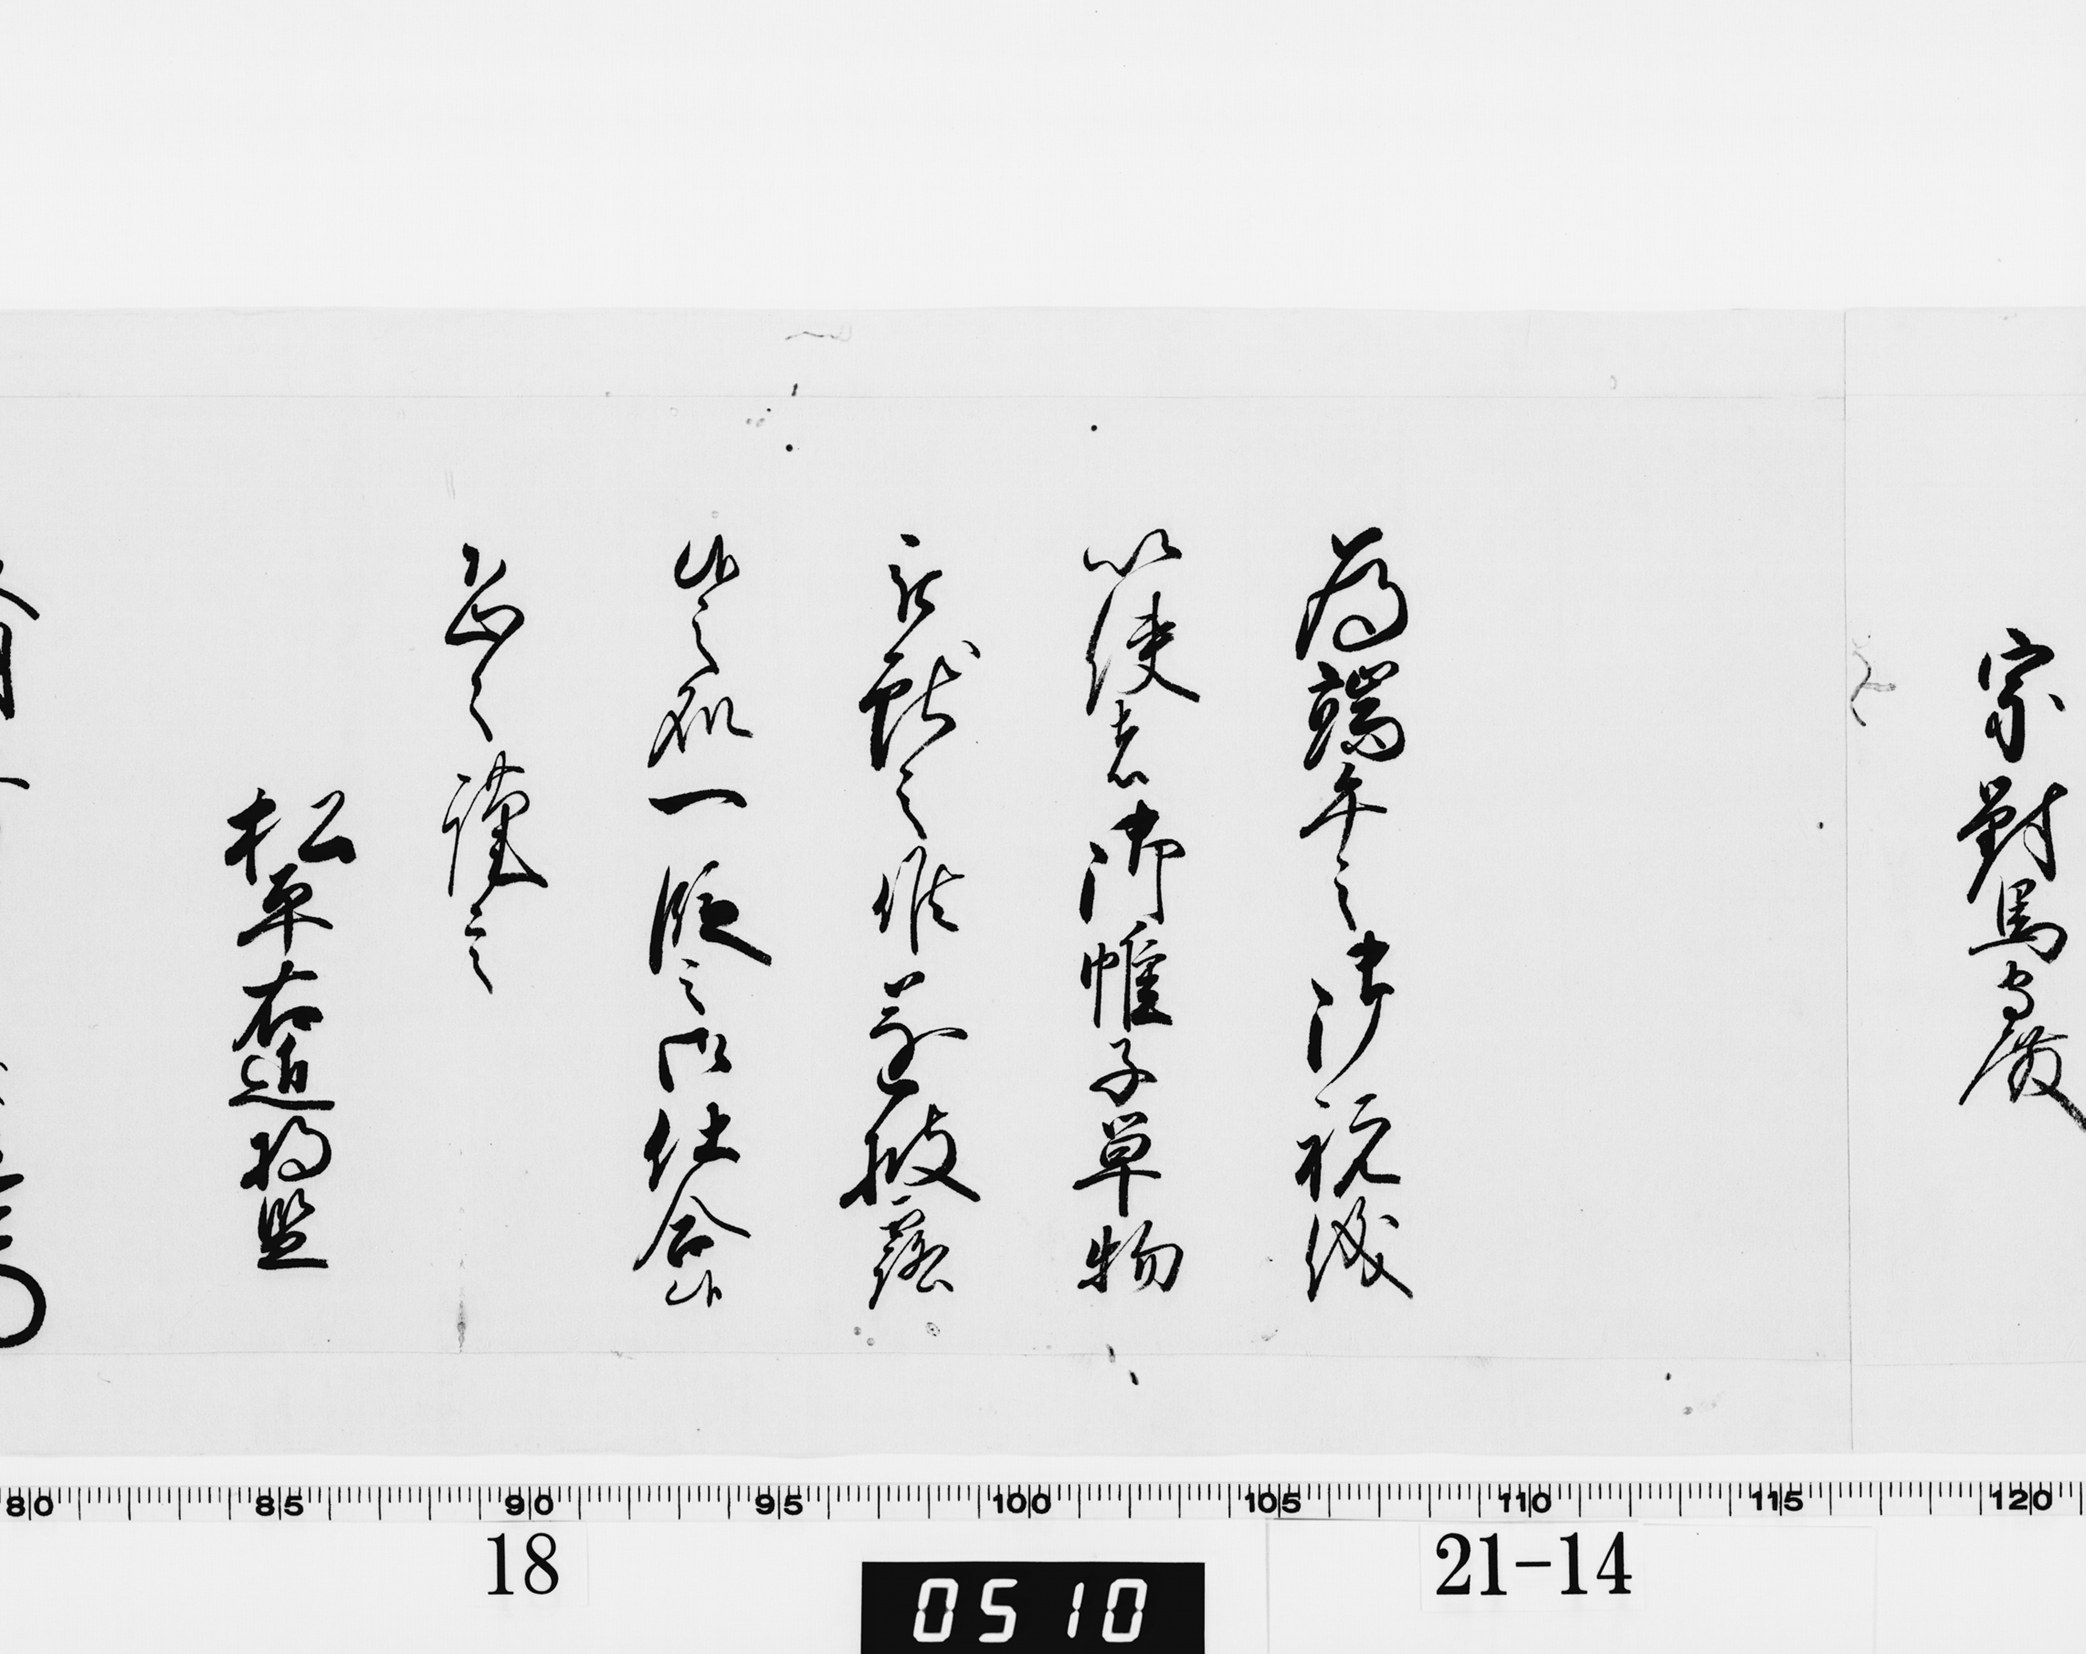 宗對馬守殿
為端午之御祝儀
以使者御帷子単物
被献之候遂披露
候之処一段之御仕合候
恐々謹言
松平右近将監
80 85 90 95 100 105 110 115 120
18
0510
21-14